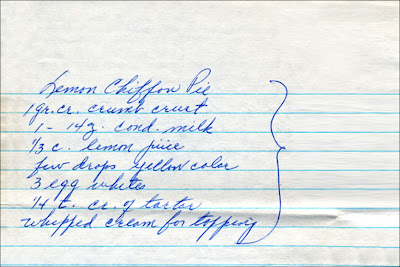 Lemon Chiffon Pie
1 gr. cr. crumb crust
1 - 14 z. cond. milk
1/3 c. lemon juice
few drops yellow color
3 egg whites
1/4 t. cr. of tartar
whipped cream for topping